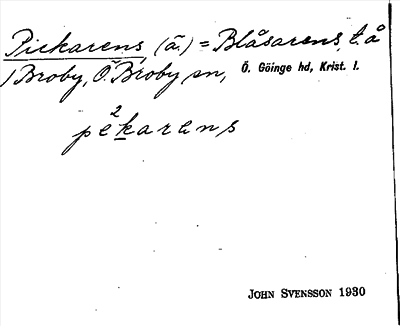 Pickarens, (å.) = Blåsarens, t. å
i Broby, Ö. Broby sn, Ö. Göinge hd, Krist. l.
pe²karens
JOHN SVENSSON 1930